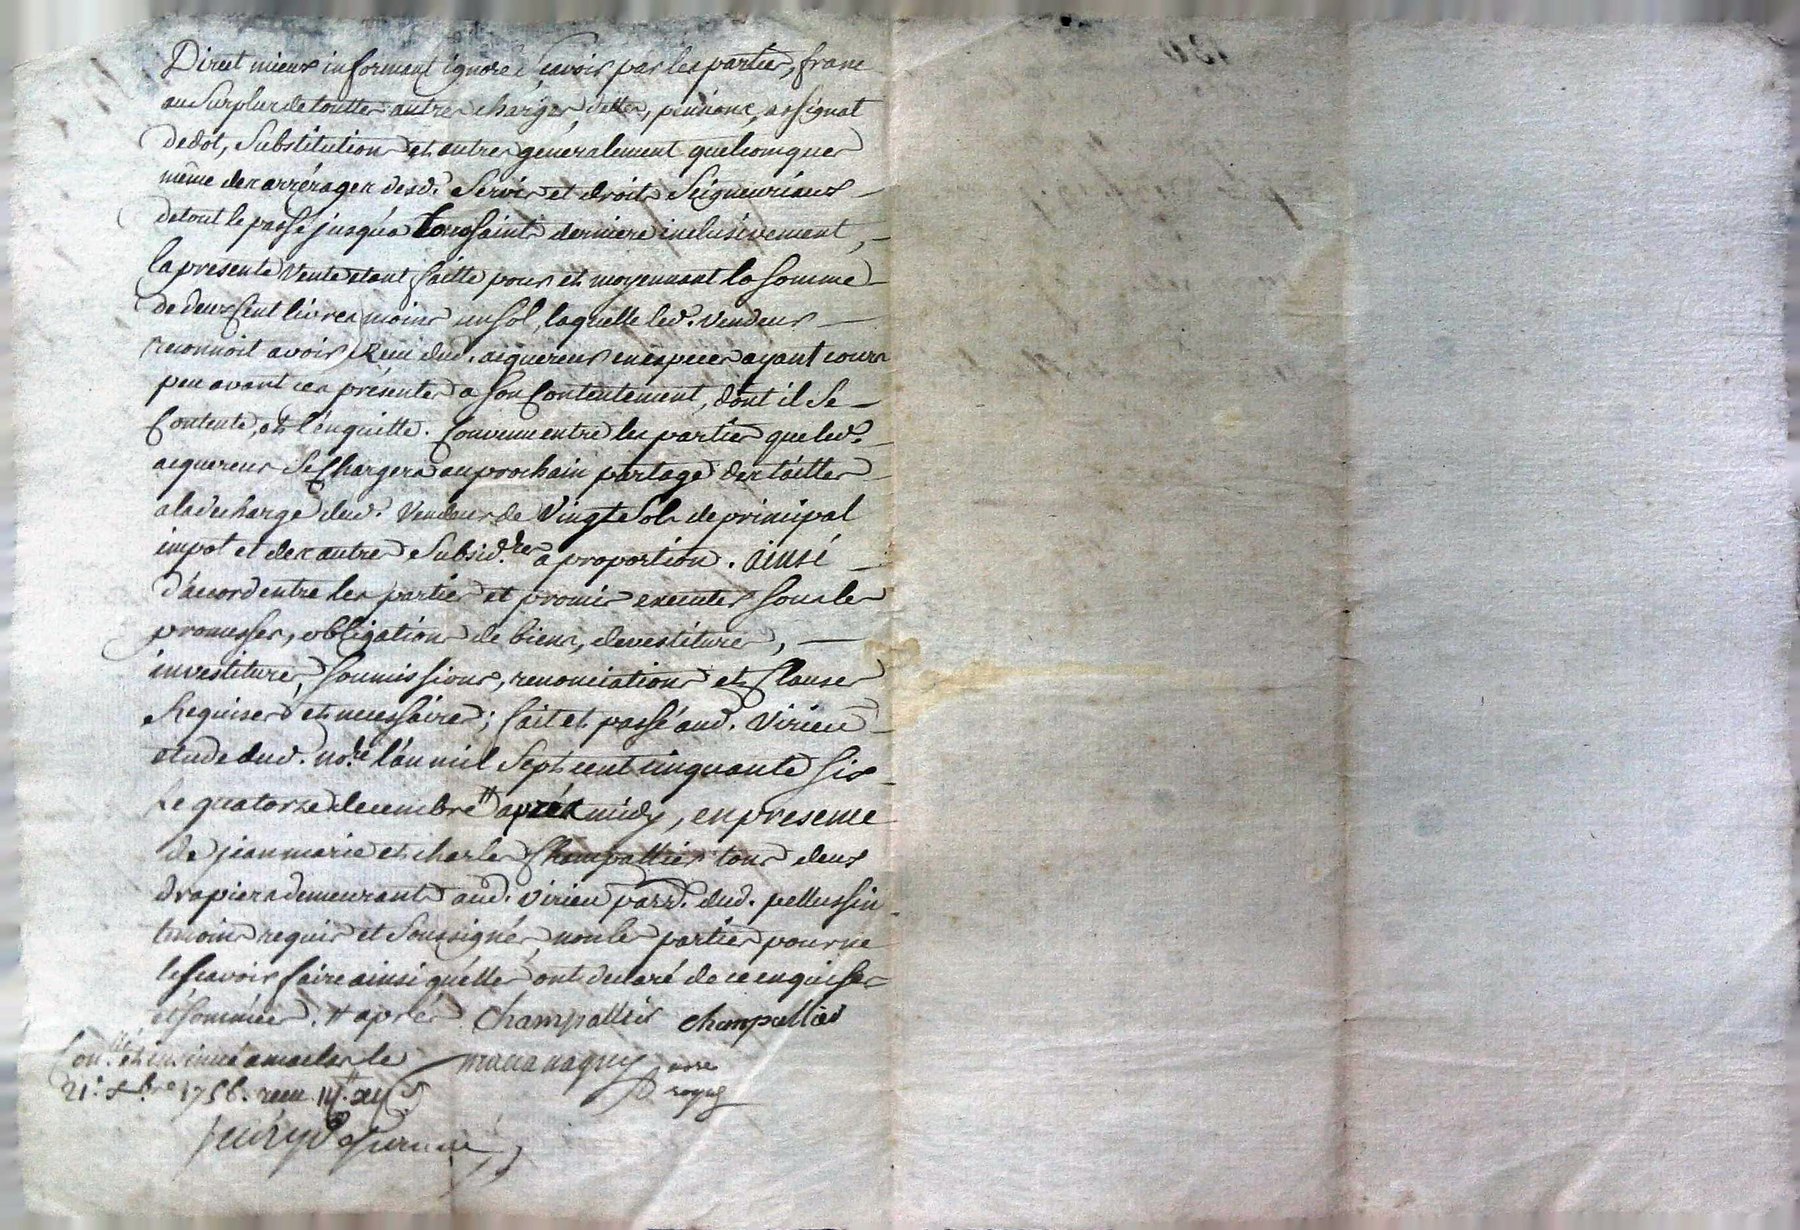 Direct mieux informant ignoré Scavoir par les parties, franc
au Surplus de touttes autres charges, dettes, pensions, assignat
de dot, Substitutions et autres generalement quelconques
même des arrérages desd. Servis et droits Seigneuriaux
de tout le passé jusqu'a toussaints derniere inclusivement,
la presente Vente etant faitte pour et moyennant la Somme
de deux Cent livres moins un sol, laquelle led. Vendeur
reconnoit avoir Receu dud. aiquereur en especes ayant cours
peu avant ces présentes a Son Contentement, dont il Se
Contente, et l'en quitte. Convenu entre les parties que led.
aiquereur Se Chargera au prochain partage des tailles
a la decharge dud. Vendeur de Vingt Sols de principal
impot et des autres Subsid.res a proportion. ainsi
d'accord entre les parties et promis executer Sous les
promesses, obligations de biens, devestitures,
investitures, Soumissions, renonciations et Clauses
Requises et necessaires; fait et passé aud. Virieu
etude dud. no.re l'an mil Sept cent cinquante Six
Le quatorze decembre # après midy, en presence
de jean marie et charles Champallier tous deux
drapiers demeurants aud. Virieu parr. dud. pellussin
temoins requis et Soussignés, non les parties pour ne
le Scavoir faire ainsi qu'elles ont declaré de ce enquises
et Sommées. # après Champallier champallier
no.re
royal
21.e x.bre 1756. receu